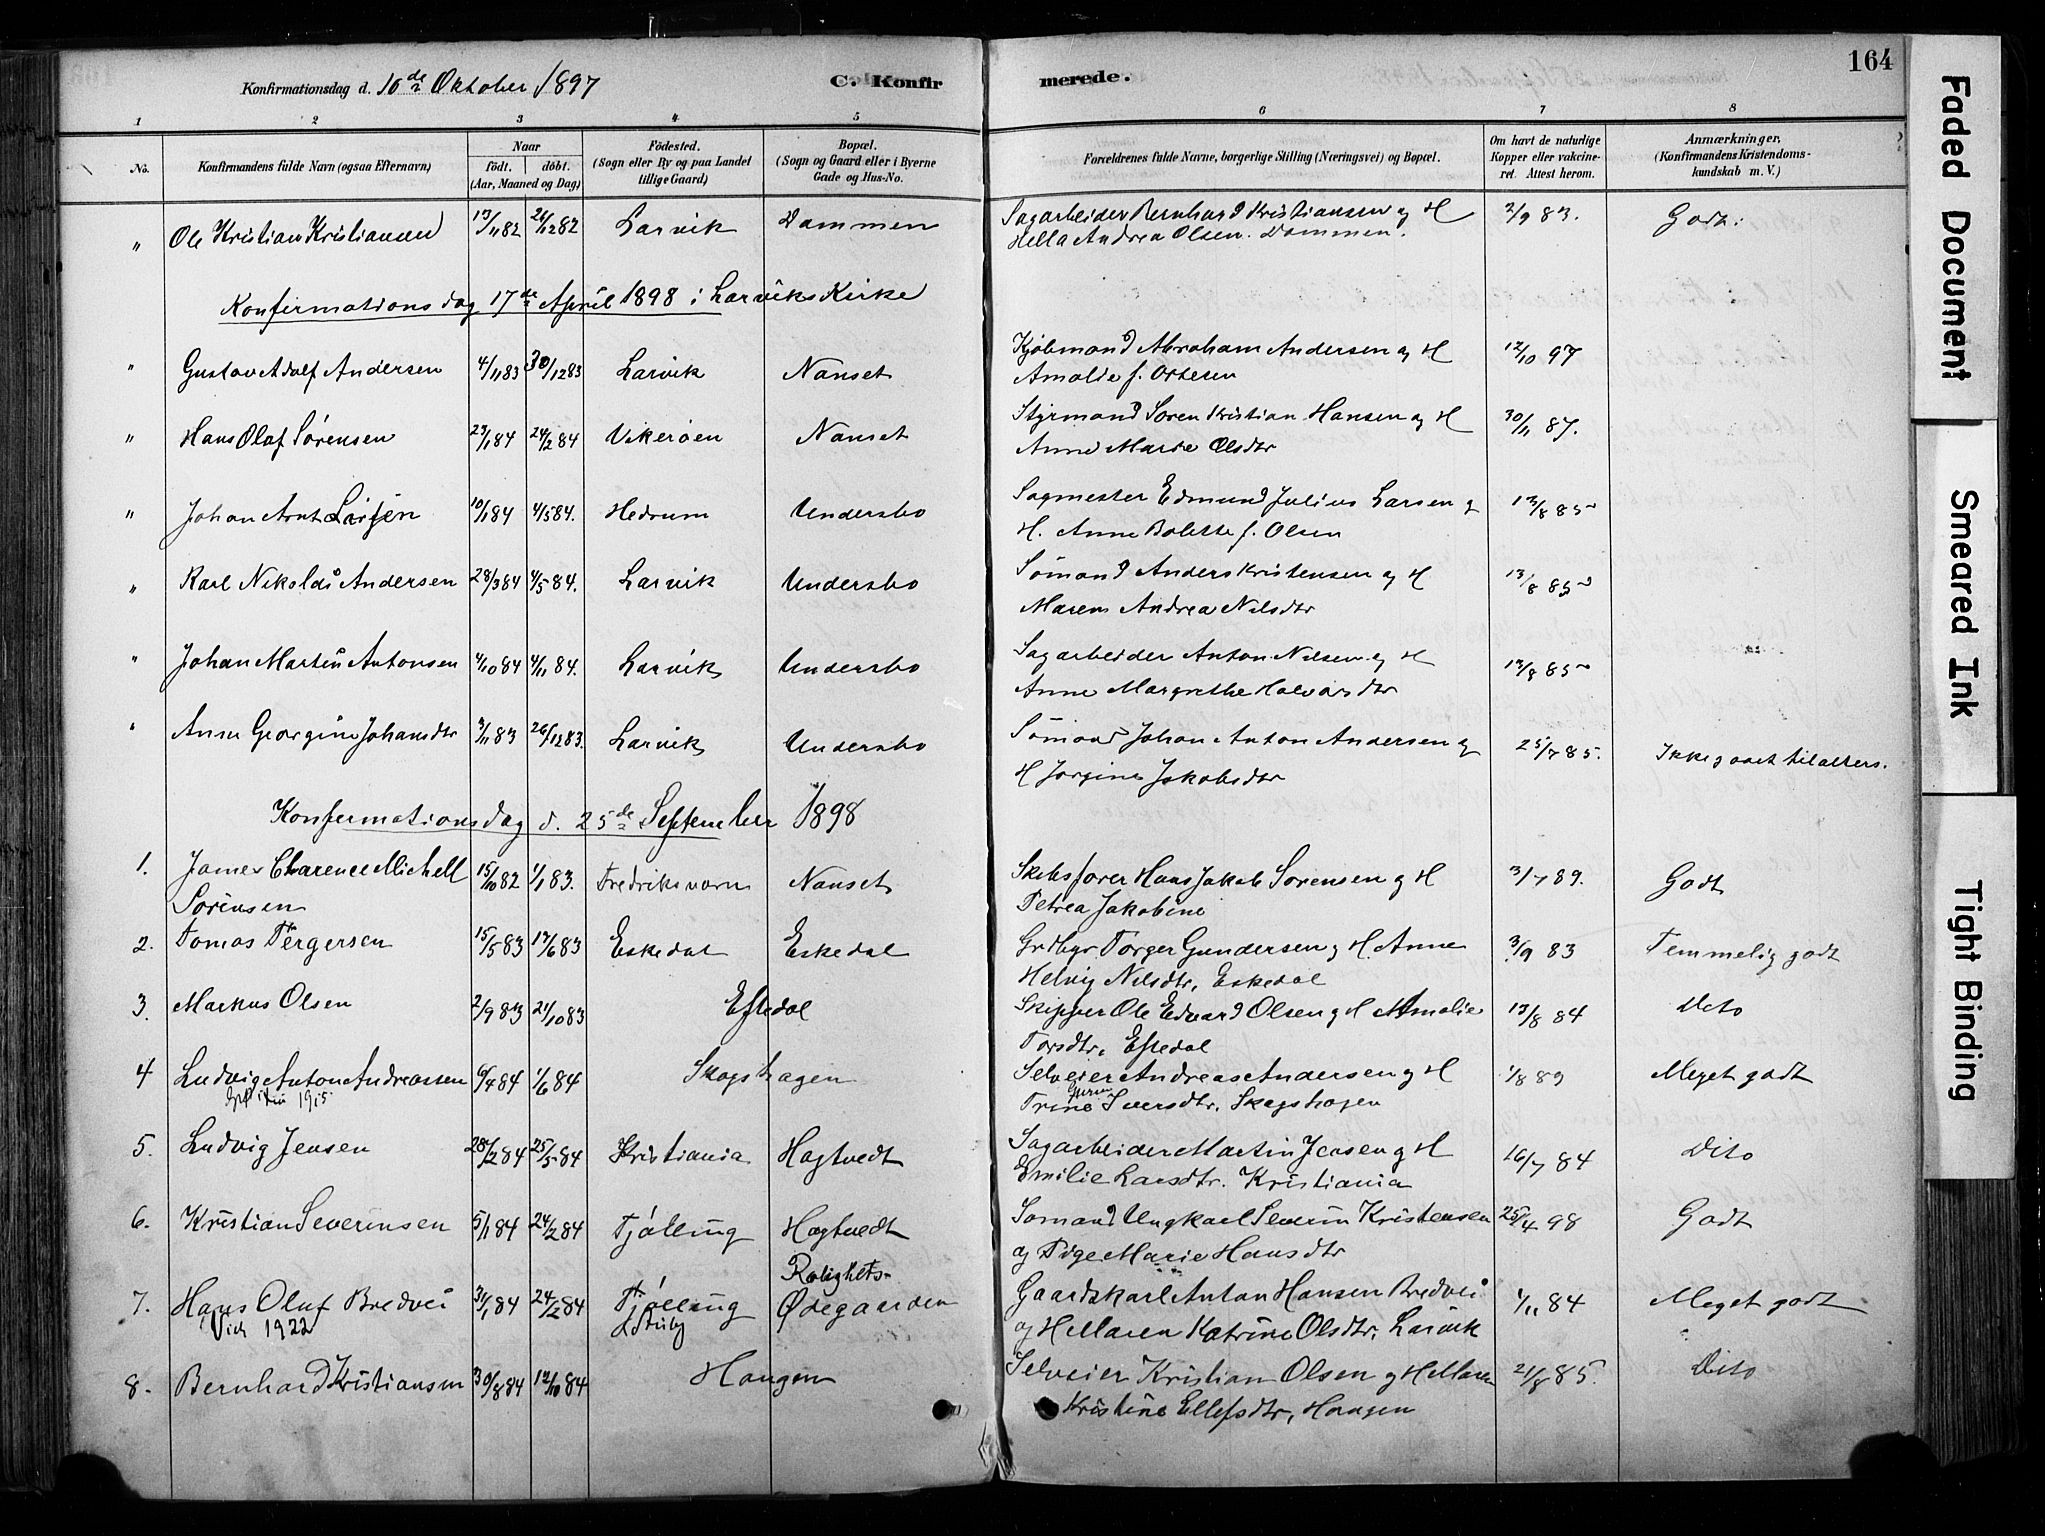 164
Konfirmationsdag d. 10de Oktober 1897 C. Konfir merede.
1 2 3 4 5 6 7 8
No. Konfirmandens fulde Navn (ogsaa Efternavn) Naar født. døbt. (Aar, Maaned og Dag) Fødested. (Sogn eller By og paa Landet tillige Gaard) Bopæl. (Sogn og Gaard eller i Byerne Gade og Hus-No. Forældrenes fulde Navne, borgerlige Stilling (Næringsvei) og Bopæl. Om havt de naturlige Kopper eller vakcineret. Attest herom. Anmærkninger. (Konfirmandens Kristendomskundskab m. V.)
" Ole Kristian Kristiansen 13/11 82 26/12 82 Larvik Dammen Sagarbeider Bernhard Kristiansen og H 2/9 83. Godt.
Hella Andrea Olsen. Dammen.
Konfirmationsdag 17de April 1898 i Larviks Kirke
" Gustav Adolf Andersen 4/11 83 30/12 83 Larvik Nanset Kjøbmand Abraham Andersen og H 12/10 97
Amalie f. Ortesen
" Hans Olaf Sørensen 23/1 84 24/2 84 Vikerøen Nanset Styrmand Søren Kristian Hansen og H 30/11 87.
Anne Marie Olsdtr
" Johan Arnt Larsen 10/1 84 4/5 84. Hedrum Undersbo Sagmester Edmund Julius Larsen og 13/8 85
H. Anne Bolette f. Olsen
" Karl Nikolai Andersen 28/3 84 4/5 84. Larvik Undersbo Sømand Anders Kristensen og H 13/8 85
Maren Andrea Nilsdtr
" Johan Martin Antonsen 4/10 84 4/11 84. Larvik Undersbo Sagarbeider Anton Nilsen og H 13/8 85
Anne Margrethe Halvarsdtr
" Anna Georgine Johansdtr 3/11 83 26/12 83. Larvik Undersbo Sømand Johan Anton Andersen og 25/7 85. Ikke gaaet til alters.
H Jorgine Jakobsdtr
Konfirmationsdag d. 25de September 1898
1. James Clarence Michell 15/10 82 1/1 83. Fredriksværn Nanset Skibsfører Hans Jakob Sørensen og H 3/7 89. Godt
Sørensen Petrea Jakobine
2. Tomas Tergersen 15/5 83 17/6 83 Eskedal Eskedal Grdbgr. Torger Gundersen og H. Anne 3/9 83 Temmelig godt
Helvig Nilsdtr, Eskedal
3. Markus Olsen 2/9 83 21/10 83 Eftedal Skipper Ole Edvard Olsen og H Amalie 13/8 84 Dito
Torsdtr, Eftedal
4 Ludvig Anton Andreassen 6/4 84 1/6 84 Skogshagen Selveier Andreas Andersen og H 1/8 89 Meget godt
1915 Trine Iversdtr. Skogshagen
5. Ludvig Jensen 28/2 84 25/5 84 Kristiania Hagtvedt Sagarbeider Martin Jensen og H 16/7 84 Dito
Emilie Larsdtr. Kristiania
6. Kristian Severinsen 5/1 84 24/2 84 Tjølling Hagtvedt Sømand Ungkarl Severin Kristensen 25/4 98 Godt
og Pige Marie Hansdtr
7. Hans Oluf Bredvei 31/1 84 24/2 84 Tjølling Rolighets- Ødegaarden Gaardskarl Anton Hansen Bredvei 1/11 84 Meget godt
1922 og H Maren Katrine Olsdtr, Larvik
8. Bernhard Kristiansen 30/8 84 12/10 84 Haugen Selveier Kristian Olsen og H Maren 21/8 85. Dito
Kristine Ellefsdtr, Haugen
Faded Document
Smeared Ink
Tight Binding